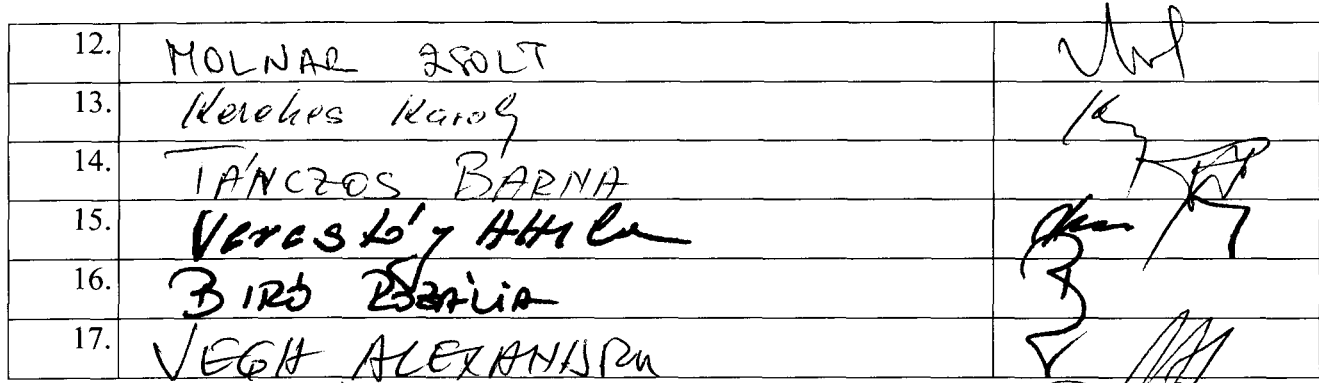 12. MOLNAR ZSOLT
13. Kerekes Karoly
14. TÁNCZOS BARNA
15. Verestóy Attila
16. BIRÓ ROZÁLIA
17. VEGH ALEXANDRU